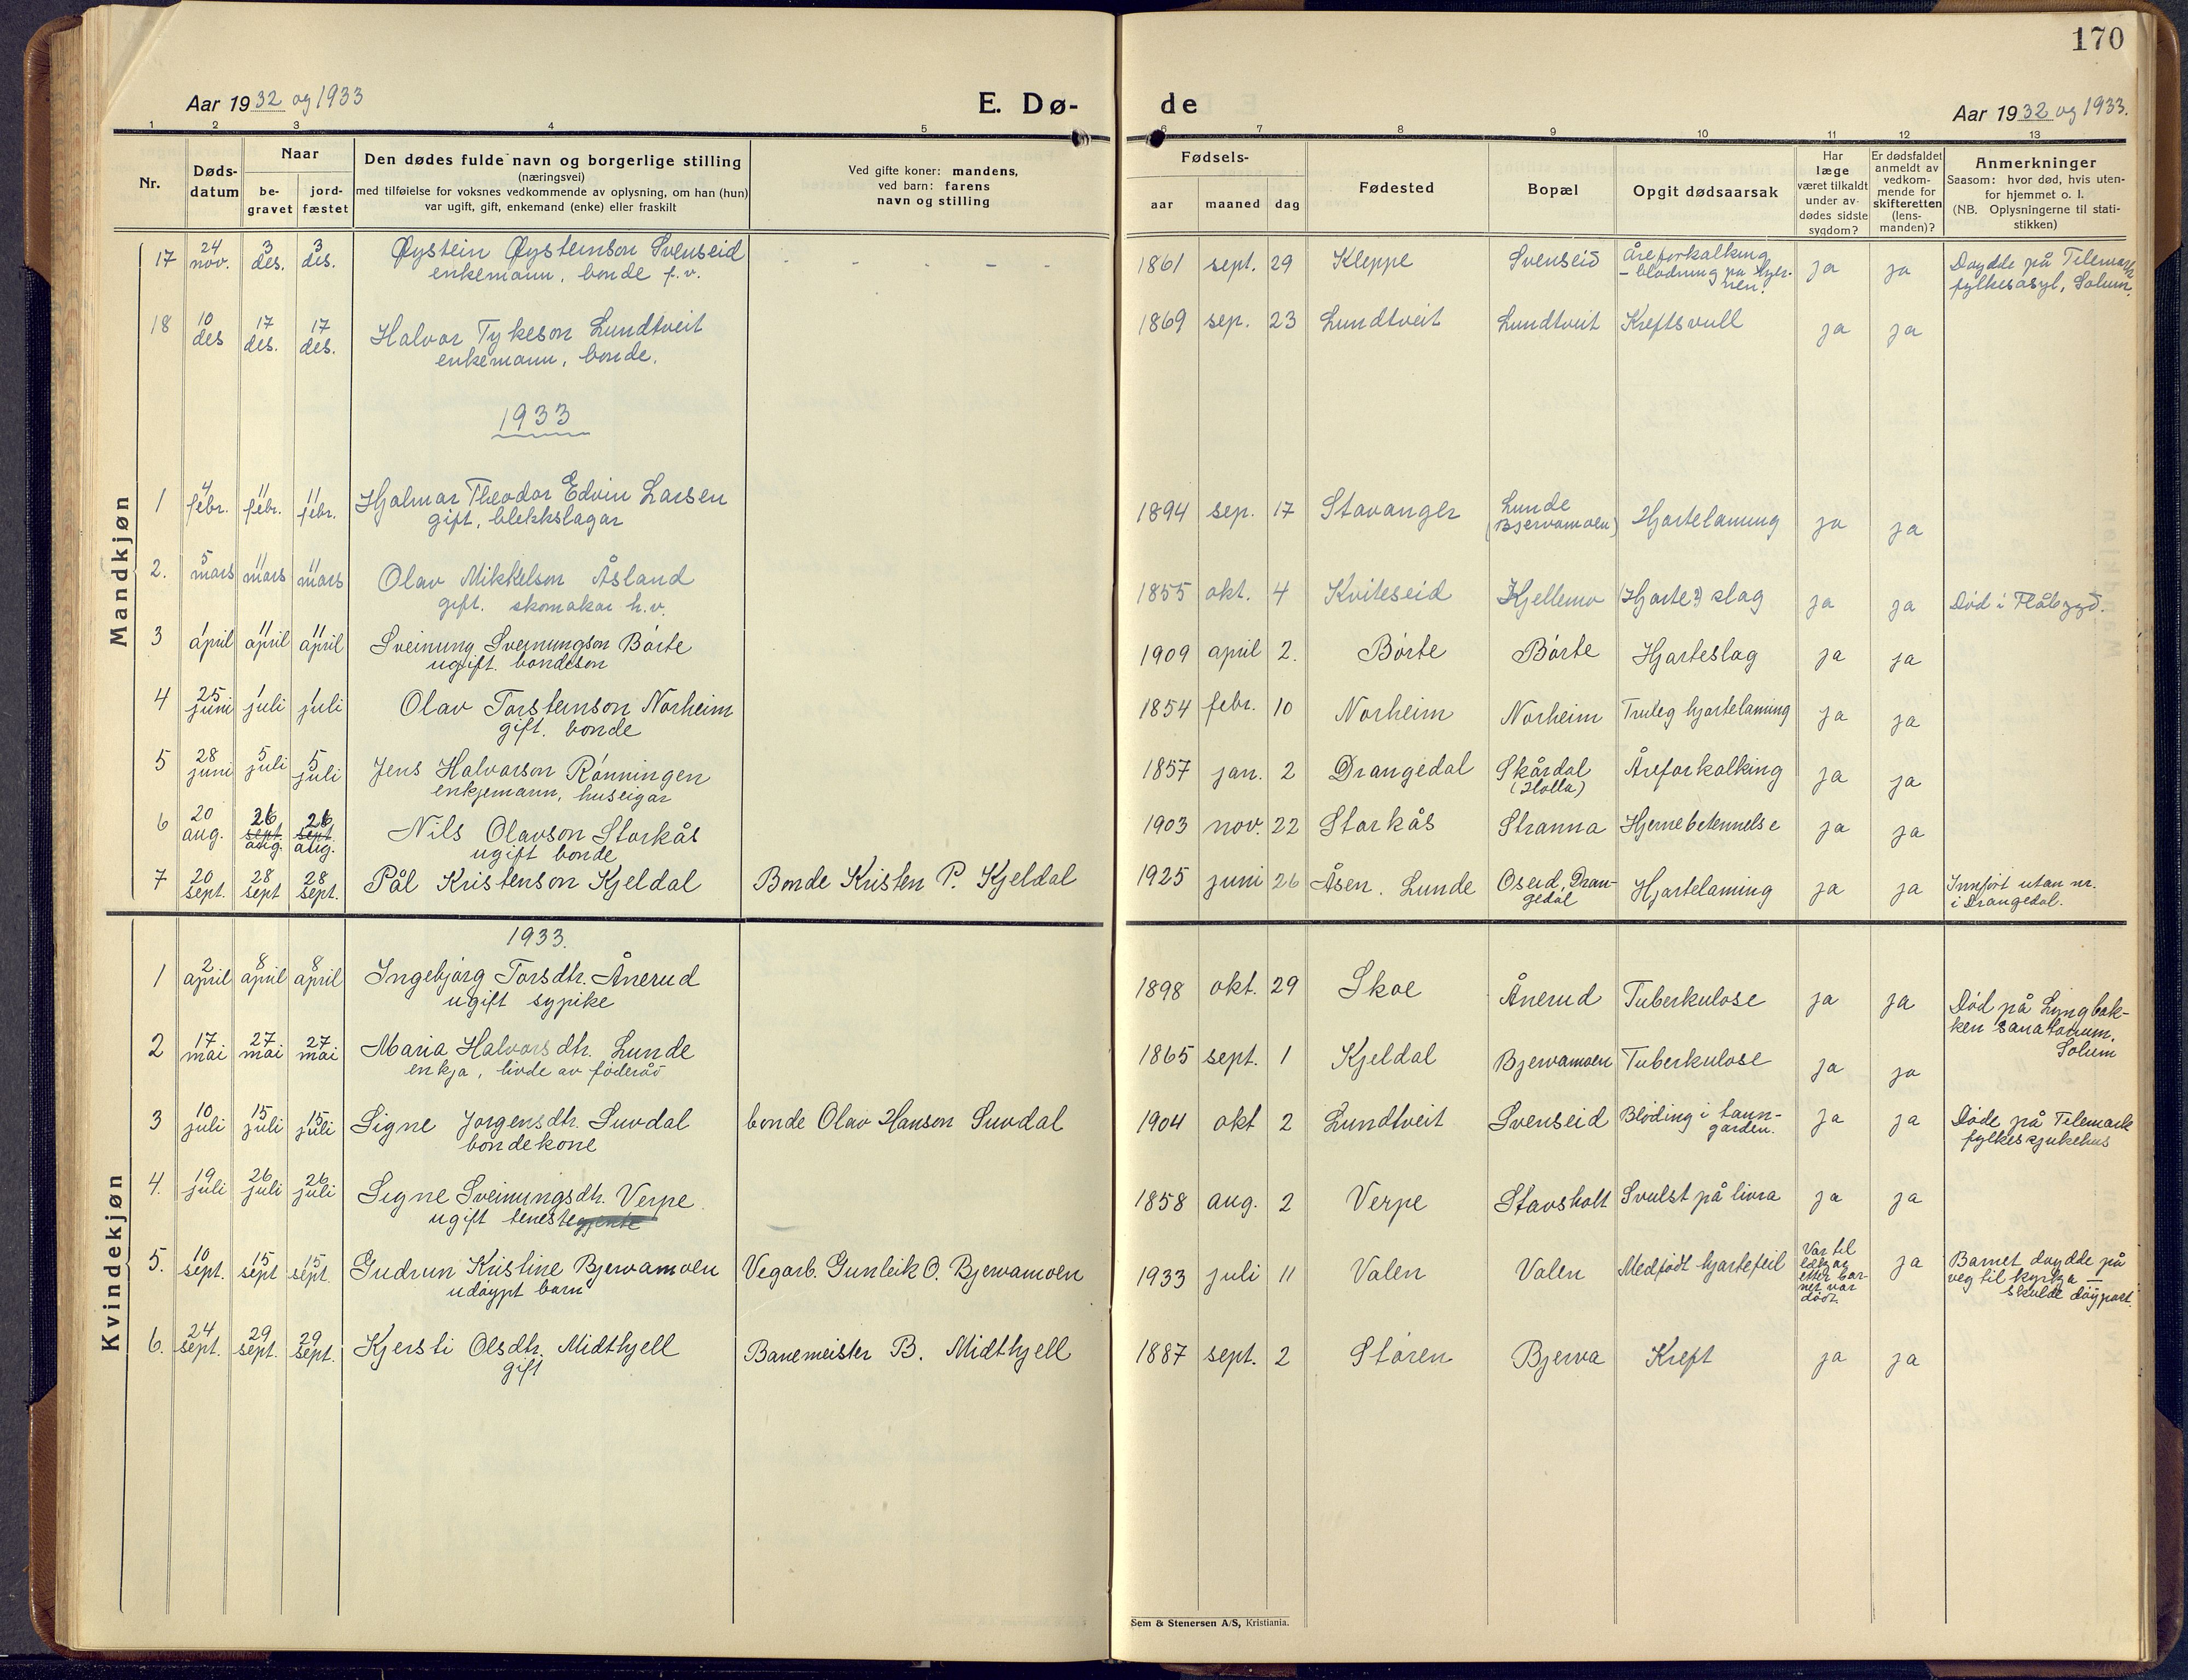 170
Aar 1932 og 1933
E. Dø-
de
Aar 1932 og 1933.
1 2 3 4 5 6 7 8 9 10 11 12 13
Nr.
Døds-
datum
Naar
be-
gravet
jord-
fæstet
Den dødes fulde navn og borgerlige stilling
(næringsvei)
med tilføielse for voksnes vedkommende av oplysning, om han (hun)
var ugift, gift, enkemand (enke) eller fraskilt
Ved gifte koner: mandens,
ved barn: farens
navn og stilling
Fødsels-
aar maaned dag
Fødested
Bopæl
Opgit dødsaarsak
Har
læge
været tilkaldt
under av-
dødes sidste
sygdom?
Er dødsfaldet
anmeldt av
vedkom-
mende for
skifteretten
(lens-
manden)?
Anmerkninger
Saasom: hvor død, hvis uten-
for hjemmet o. l.
(NB. Oplysningerne til stati-
stikken)
Mandkjøn
17 24 nov. 3 des. 3 des. Øystein Øysteinson Svenseid
enkemann, bonde f. v.
- - - - -
1861 sept. 29 Kleppe Svenseid Åreforkalking
- blødning på hjer-
nen.
ja ja Døydde på Telemark
fylkesasyl, Solum.
18 10 des 17 des. 17 des. Halvor Tykeson Lundtveit
enkemann, bonde.
1869 sep. 23 Lundtveit Lundtveit Kreftsvull ja ja
1933
1 4 febr. 11 febr. 11 febr. Hjalmar Theodor Edvin Larsen
gift, blekkslagar
1894 sep. 17 Stavanger Lunde
(Bjervamoen)
Hjartelaming ja ja
2. 5 mars 11 mars 11 mars Olav Mikkelson Åsland
gift. skomakar h.v.
1855 okt. 4 Kviteseid Kjellemo (Hjarte?) slag ja ja Død i Flåbygd.
3 1 april 11 april 11 april Sveinung Sveinungson Børte
ugift. bondeson
1909 april 2. Børte Børte Hjarteslag ja ja
4 25 juni 1 juli 1 juli Olav Torsteinson Norheim
gift. bonde
1854 febr. 10 Norheim Norheim Truleg hjartelaming ja ja
5 28 juni 5 juli 5 juli Jens Halvorson Rønningen
enkjemann, huseigar
1857 jan. 2 Drangedal Skårdal
(Holla)
Åreforkalking ja ja
6 20 aug. 26 sept. aug. 26 sept. aug. Nils Olavson Storkås
ugift bonde
1903 nov. 22 Storkås Stranna Hjernebetennelse ja ja
7 20 sept. 28 sept 28 sept. Pål Kristenson Kjeldal Bonde Kristen P. Kjeldal
1925 juni 26 Åsen. Lunde Oseid, Dran-
gedal
Hjartelaming ja ja Innført utan nr.
i Drangedal.
Kvindekjøn
1933.
1 2 april 8 april 8 april Ingebjørg Torsdtr. Ånerud
ugift sypike
1898 okt. 29 Skoe Ånerud Tuberkulose ja ja Død på Lyngbak-
ken sanatorium.
Solum
2 17 mai 27 mai 27 mai Maria Halvorsdtr. Lunde
enkja, livde av føderåd
1865 sept. 1 Kjeldal Bjervamoen Tuberkulose ja ja
3 10 juli 15 juli 15 juli Signe Jørgensdtr. Suvdal
bondekone
bonde Olav Hanson Suvdal
1904 okt 2 Lundtveit Svenseid Bløding i
garden.
ja ja Døde på Telemark
fylkessjukehus
4. 19 juli 26 juli 26 juli Signe Sveinungsdtr. Verpe
ugift tenestegjente
1858 aug. 2 Verpe Stavsholt Svulst på livra ja ja
5. 10 sept. 15 sept 15 sept. Gudrun Kristine Bjervamoen
udøypt barn
Vegarb. Gunleik O. Bjervamoen
1933 juli 11 Valen Valen Medfødt hjartefeil Var til
lækjar
etter bar-
net var
dødt.
ja Barnet døydde på
veg til kyrkja —
skulde døypast.
6. 24 sept. 29 sept. 29 sept. Kjersti Olsdtr. Midthjell
gift
Banemeister B. Midthjell
1887 sept. 2 Støren Bjerva Kreft ja ja
Sem & Stenersen A/S, Kristiania.